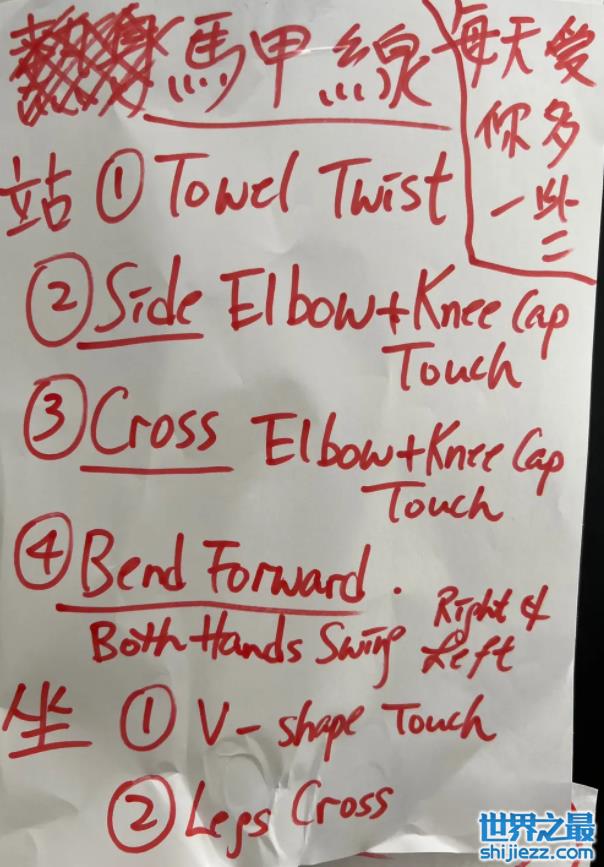 馬甲線
每天爱
你多
一些
站 ① Towel Twist
② Side Elbow+Knee Cap
Touch
③ Cross Elbow+Knee Cap
Touch
④ Bend Forward.
Both Hands Swing Right &
Left
坐 ① V-shape Touch
② Legs Cross
世界之最
shijiezz.com